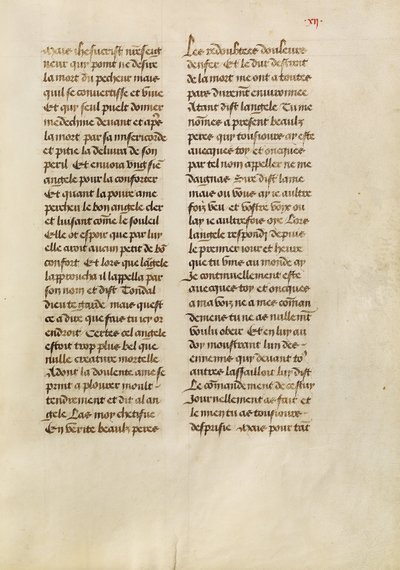 ·xij·
Mais ihesucrist nr̃eseig
neur qui point ne desire
la mort du pecheur mais
quil se conuertisse et viue
Et qui seul puelt donner
medecine deuant et apẽs
la mort par sa misericorde
et pitie la deliura de son
peril Et enuoia vng sien
angele pour la conforter
Et quant la poure ame
percheu le bon angele cler
et luisant cõme le souleil
Elle ot espoir que par luy
elle aroit aucun petit de bõ
confort Et lors que lãgele
lapproucha il lappella par
son nom et dist Tondal
dieu te garde mais quest
ce a dire que fais tu icy or
endroit Certes cel angele
estoit trop plus bel que
nulle creature mortelle
Adont la doulente ame se
print a plourer moult
tendrement et dit al an
gele Las moy chetifue
En verite beaulz peres
Les redoubtees douleurs
denfer Et le dur destroit
de la mort me ont a toutes
pars durem̃t enuironnee
Atant dist langele Tu me
nõmes a present beaulz
peres qui tousiours ay este
auecques toy et oncques
par tel nom appeller ne me
daignas Sire dist lame
mais ou vous ay ie aultre
fois veu et vostre voix ou
lay ie aultrefois oye Lors
langele respondj depuis
le premier iour et heure
que tu vins au monde ay
Je continuellement este
auecques toy et oncques
a ma voix ne a mes cõman
demens tu ne as nullem̃t
voulu obeir Et en luy au
doy moustrant lun des
ennemis qui deuant to9
autres lassailloit luy dist
Le cõmandement de cestuy
Journellement as fait et
le mien tu as tousiours
desprisie Mais pour tãt